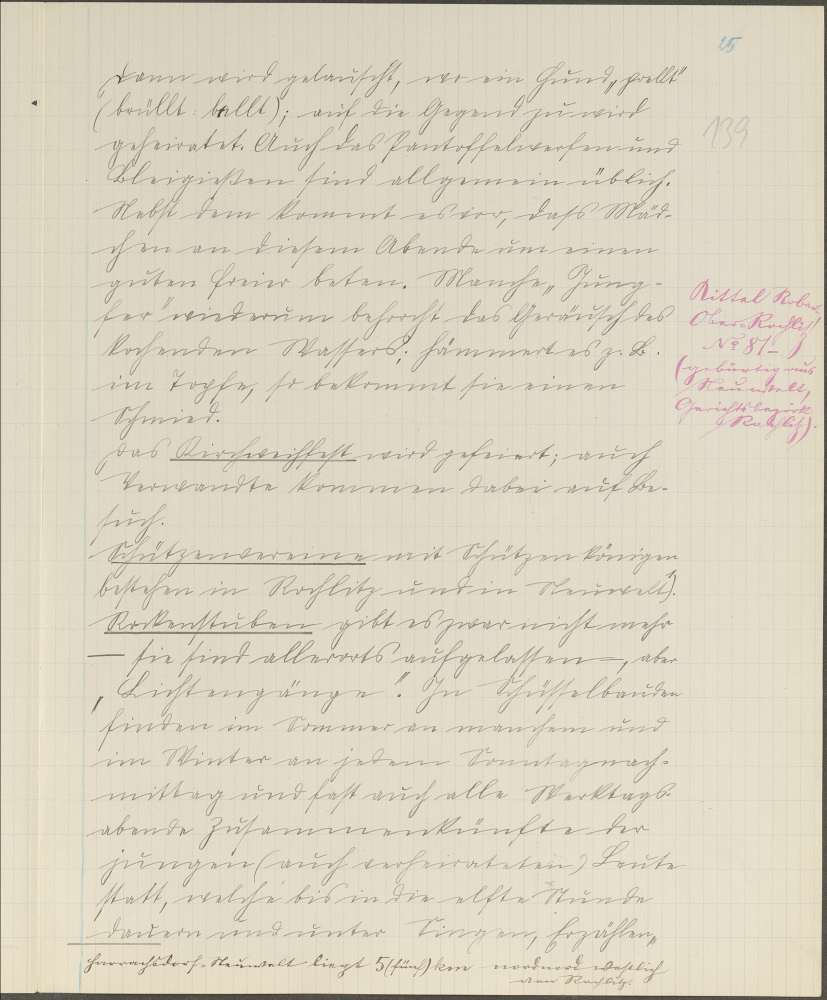 25
139
Dann wird gelauscht, wo ein Hund „prellt"
(brüllt: bellt); auf die Gegend zu wird
geheiratet. Auch das Pantoffelwerfen und
Bleigießen sind allgemein üblich.
Nebst dem kommt es vor, dass Mäd-
chen an diesem Abende um einen
guten Freier beten. Manche „Jung-
fer" wiederum behorcht das Geräusch des
kochenden Wassers; hämmert es z. B.
im Topfe, so bekommt sie einen
Schmied.
Das Kirchweihfest wird gefeiert; auch
Verwandte kommen dabei auf Be-
such.
Schützenvereine mit Schützenkönigen
bestehen in Rochlitz und in Neuwelt).
Rockenstuben gibt es zwar nicht mehr
— sie sind allerorts aufgelassen —, aber
„Lichtengänge". In Schüsselbauden
finden im Sommer an manchem und
im Winter an jedem Sonntagnach-
mittag und fast auch alle Werktags-
abende Zusammenkünfte der
jungen (auch verheirateten) Leute
statt, welche bis in die elfte Stunde
dauern und unter Singen, Erzählen,
Harrachsdorf-Neuwelt liegt 5 (fünf) km nordnordwestlich
von Rochlitz.
Kittel Robert
Ober-Rochlitz
No 81- )
(gebürtig aus
Neuwelt,
Gerichtsbezirk
Rochlitz).